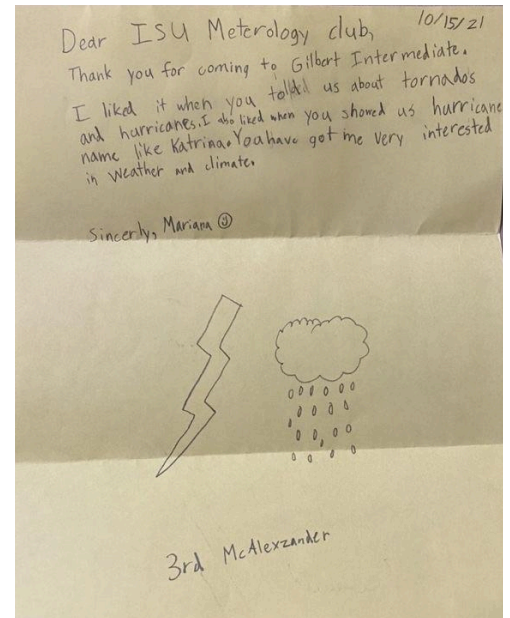 10/15/21
Dear ISU Meterology club,
Thank you for coming to Gilbert Intermediate.
I liked it when you us about tornados
and hurricanes. I also liked when you showed us hurricane
name like Katrina. You have got me very interested
in weather and climate.
Sincerly, Mariana
3rd McAlexzander